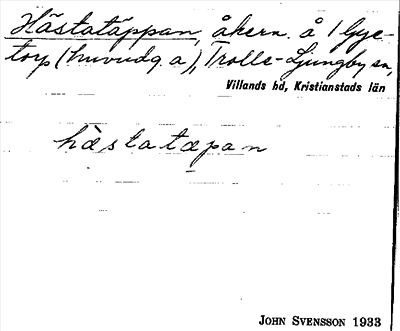 Hästatäppan, åkern. å 1 Gye-
torp (huvudg. a), Trolle-Ljungby sn,
Villands hd, Kristianstads län
hästatæpan
JOHN SVENSSON 1933